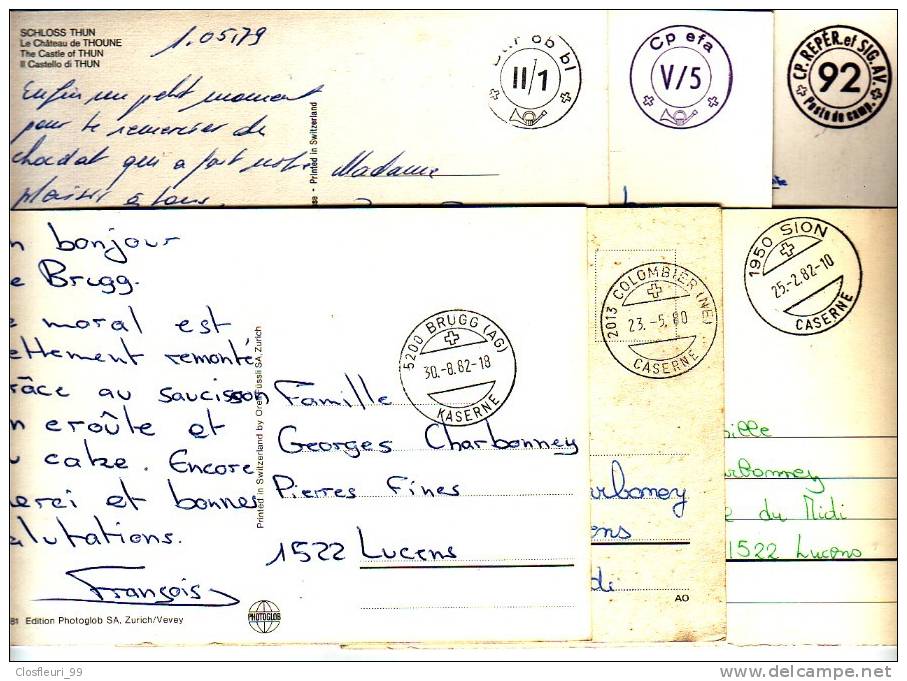 SCHLOSS THUN
Le Château de THOUNE
The Castle of THUN
Il Castello di THUN
1.05.79
Enfin un petit moment
pour te remercier de
chocolat qui a fait notre
plaisir à tous.
se - Printed in Switzerland
Madame
ob bl
II/1
Cp efa
V/5
CP. REPÉR. et SIG. AV.
92
Poste de camp.
n bonjour
e Brugg.
e moral est
ettement remonté
râce au saucisson
n croûte et
u cake. Encore
merci et bonnes
alutations.
François
81 Edition Photoglob SA, Zurich/Vevey
PHOTOGLOB
Printed in Switzerland by Orell Füssli SA, Zurich
5200 BRUGG (AG)
30.-8.82-18
KASERNE
Famille
Georges Charbonney
Pierres Fines
1522 Lucens
2013 COLOMBIER (NE)
23.-5.80
CASERNE
arboney
ens
di
AO
1950 SION
25.-2.82-10
CASERNE
ille
arbonney
e du Midi
1522 Lucens
Closfleuri_99
www.delcampe.net